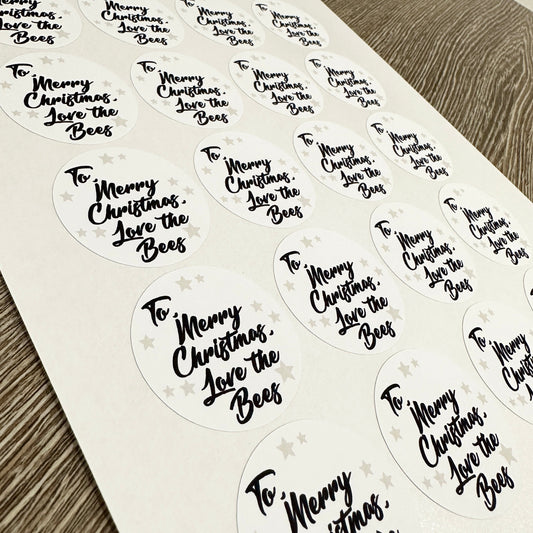 Christmas,
Love the
Bees
Christmas,
Love the
Bees
Merry
Christmas,
Love the
Bees
Merry
Christmas,
Love the
Bees
To,
Merry
Christmas,
Love the
Bees
To,
Merry
Christmas,
Love the
Bees
To,
Merry
Christmas,
Love the
Bees
To,
Merry
Christmas,
Love the
Bees
To,
Merry
Christmas,
Love the
Bees
To,
Merry
Christmas,
Love the
Bees
To,
Merry
Christmas,
Love the
Bees
To,
Merry
Christmas,
Love the
Bees
To,
Merry
Christmas,
Love the
Bees
To,
Merry
Christmas,
Love the
Bees
To,
Merry
Christmas,
Love the
Bees
To,
Merry
Christmas,
Love the
Bees
To,
Merry
Christmas,
To,
Merry
Christmas,
Love the
Bees
To,
Merry
Love the